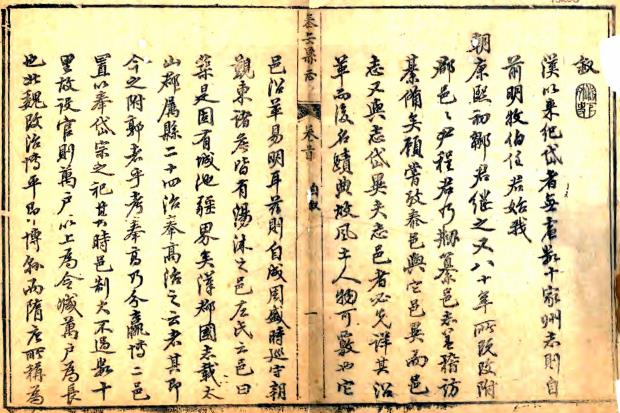 叙
漢以来紀岱者無慮數十家州志則自
前明牧伯任君始我
朝康熙初鄒君继之又八十年所既改附
郡邑〻尹程君乃刱纂邑志稽訪
綦備矣顧嘗攷泰邑與它邑異而邑
志又與志岱異矣志邑者必先詳其沿
革而後名蹟典故風土人物可覈也它
泰安縣志
卷首
自叙
一
邑沿革易明耳若則自成周盛時巡守朝
覲東諸侯皆有湯沐之邑左氏云邑曰
築是固有城池疆界矣漢郡國志載太
山郡屬縣二十四治奉高治之云者其即
今之附郭者乎考奉高乃分嬴博二邑
置以奉岱宗之祀其時邑制大不過數十
里故設官則萬户以上為令減萬户為長
也北魏改治博平即博縣而隋唐所稱為